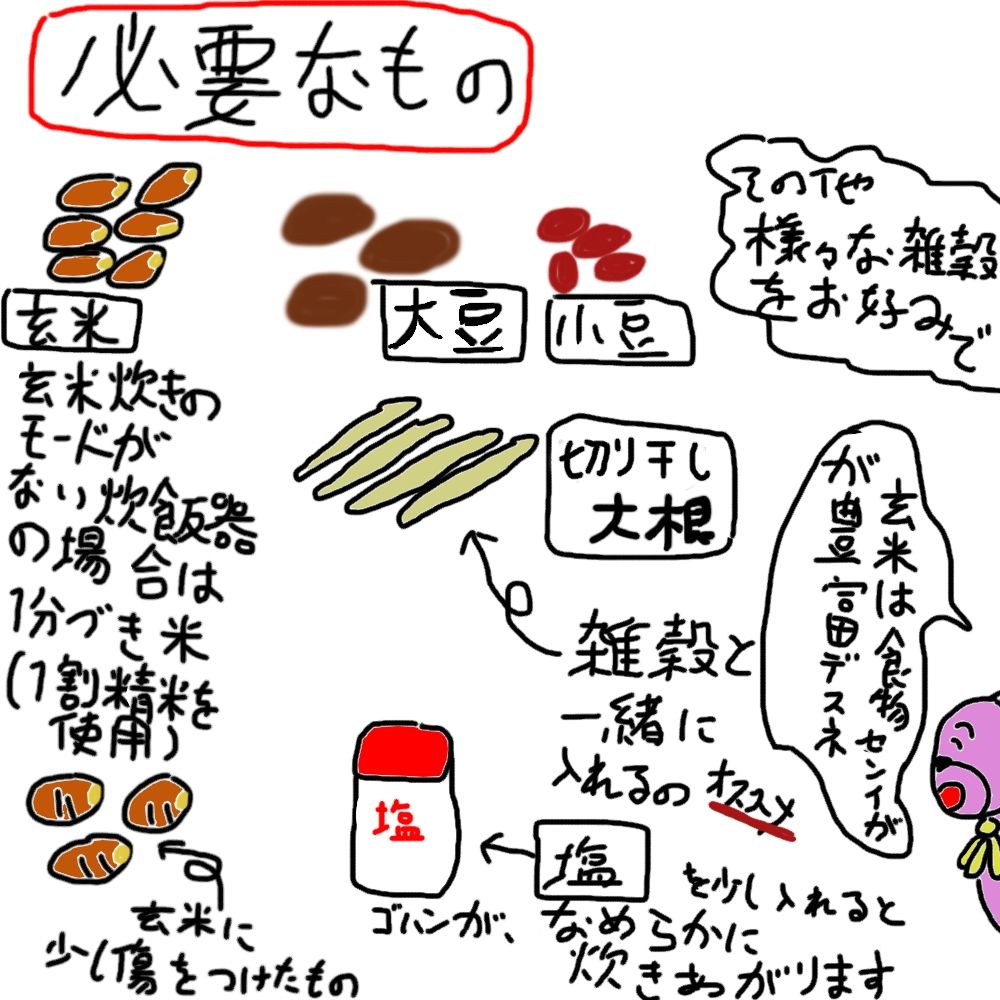 必要なもの
玄米
玄米炊きの
モードが
ない炊飯器
の場合は
1分づき米
(1割精米を
使用)
玄米に
少し傷をつけたもの
大豆
小豆
その他
様々な雑穀
をお好みで
切り干し
大根
雑穀と
一緒に
入れるの オススメ
玄米は食物センイが
が豊富デスネ
塩
塩
を少し入れると
ゴハンが、なめらかに
炊きあがります